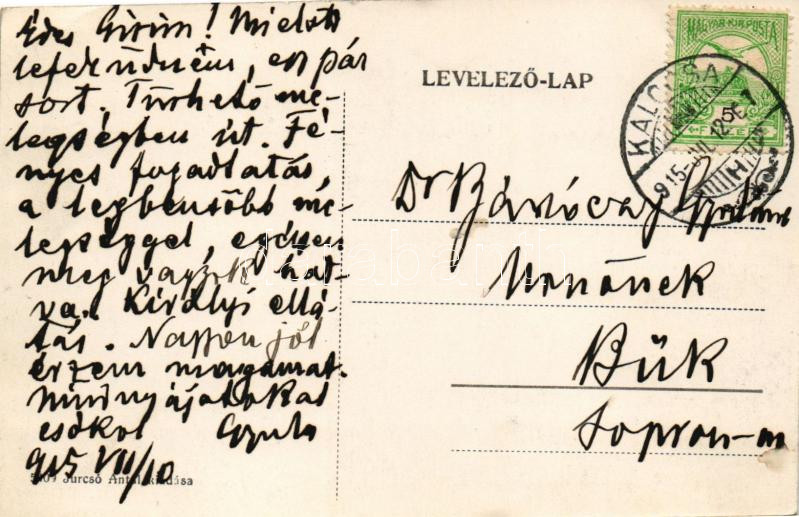 Édes Gizim! Mielőtt
lefeküdném, egy pár
sort. Türhető me-
legségben út. Fé-
nyes fogadtatás,
a legbensőbb me-
legséggel, egészen
meg vagyok hat-
va. Királyi ellá-
tás. Nagyon jól
érzem magamat.
Mindnyájatokat
csókol Gyula
915 VII/10
Jurcsó Antal kiadása
LEVELEZŐ-LAP
MAGYAR KIR. POSTA
5
FILLÉR
KALOCSA
915 JUL. 12
Dr Báróczy
Urnőnek
Bük
Sopron-m